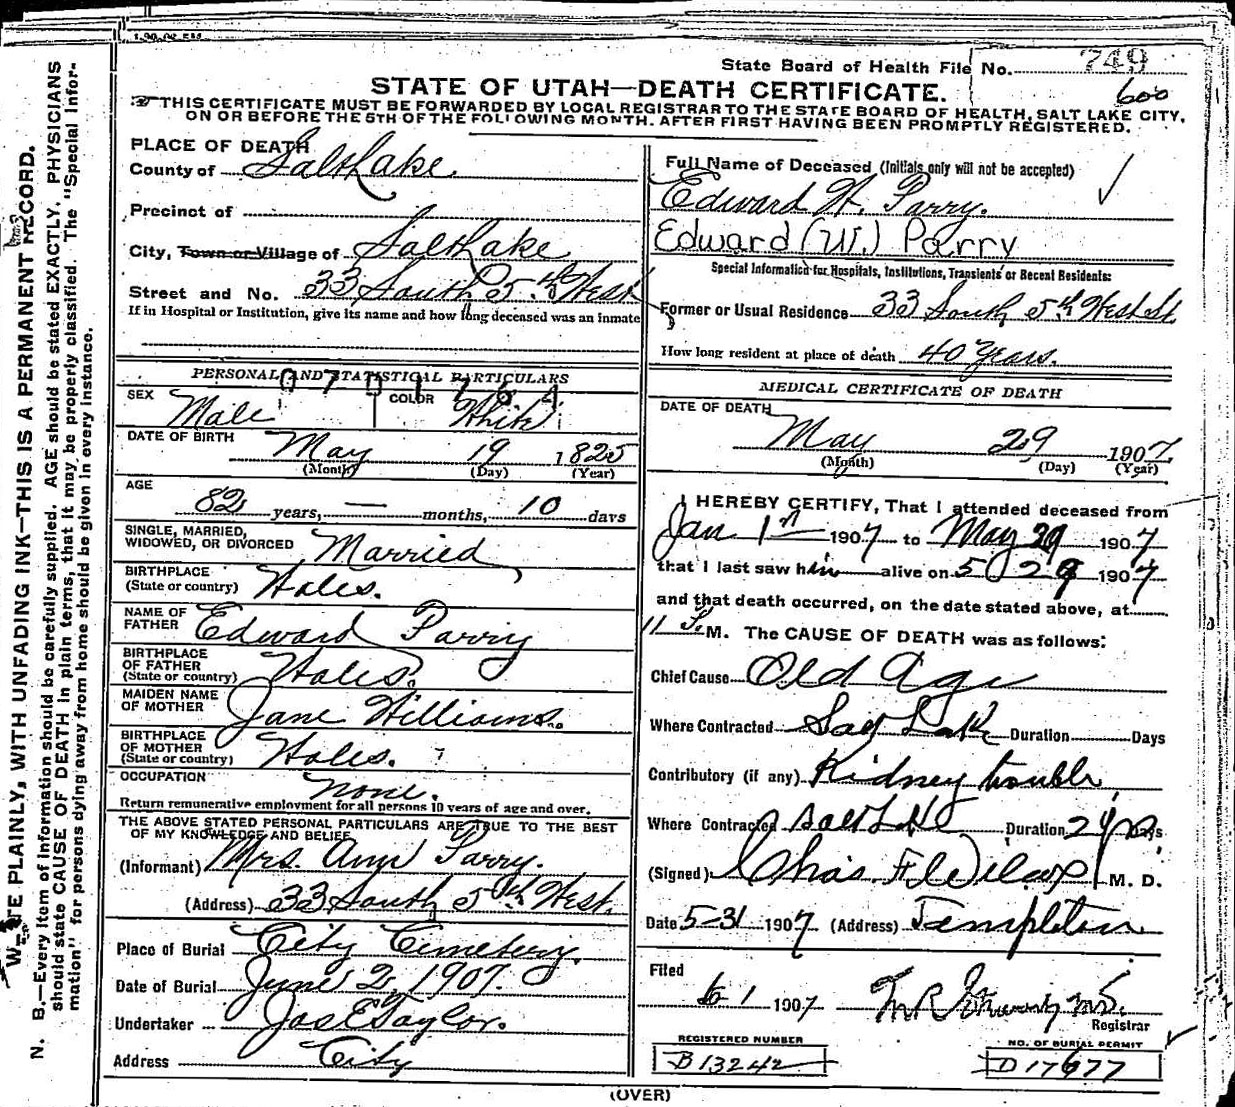 State Board of Health File No. 749
600
STATE OF UTAH—DEATH CERTIFICATE.
THIS CERTIFICATE MUST BE FORWARDED BY LOCAL REGISTRAR TO THE STATE BOARD OF HEALTH, SALT LAKE CITY,
ON OR BEFORE THE 5TH OF THE FOLLOWING MONTH. AFTER FIRST HAVING BEEN PROMPTLY REGISTERED.
W—TE PLAINLY, WITH UNFADING INK—THIS IS A PERMANENT RECORD.
N. B.—Every item of information should be carefully supplied. AGE should be stated EXACTLY. PHYSICIANS
should state CAUSE OF DEATH in plain terms, that it may be properly classified. The "Special Infor-
mation" for persons dying away from home should be given in every instance.
PLACE OF DEATH
County of Salt Lake
Precinct of
City, Town or Village of Salt Lake
Street and No. 33 South 5th West
If in Hospital or Institution, give its name and how long deceased was an inmate
PERSONAL AND STATISTICAL PARTICULARS
SEX Male COLOR White
DATE OF BIRTH May 19 1825
(Month) (Day) (Year)
AGE
82 years, — months, 10 days
SINGLE, MARRIED,
WIDOWED, OR DIVORCED Married
BIRTHPLACE
(State or country) Wales.
NAME OF
FATHER Edward Parry
BIRTHPLACE
OF FATHER
(State or country) Wales.
MAIDEN NAME
OF MOTHER Jane Williams.
BIRTHPLACE
OF MOTHER
(State or country) Wales.
OCCUPATION None.
Return remunerative employment for all persons 10 years of age and over.
THE ABOVE STATED PERSONAL PARTICULARS ARE TRUE TO THE BEST
OF MY KNOWLEDGE AND BELIEF
(Informant) Mrs. Ann Parry.
(Address) 33 South 5th West.
Place of Burial City Cemetery.
Date of Burial June 2, 1907.
Undertaker Jos E Taylor.
Address City
Full Name of Deceased (Initials only will not be accepted)
Edward W. Parry.
Edward (W.) Parry
Special Information for Hospitals, Institutions, Transients or Recent Residents:
Former or Usual Residence 33 South 5th West St.
How long resident at place of death 40 Years.
MEDICAL CERTIFICATE OF DEATH
DATE OF DEATH
May 29 1907
(Month) (Day) (Year)
I HEREBY CERTIFY, That I attended deceased from
Jan 1st 1907 to May 29 1907
that I last saw him alive on 5 29 1907
and that death occurred, on the date stated above, at
11 P. M. The CAUSE OF DEATH was as follows:
Chief Cause Old Age
Where Contracted Salt Lake Duration Days
Contributory (if any) Kidney trouble
Where Contracted Salt Lake Duration Days
(Signed) Chas F Wilcox M. D.
Date 5-31 1907 (Address) Templeton
Filed
6 1 1907
Registrar
REGISTERED NUMBER
B 13242
NO. OF BURIAL PERMIT
D 17677
(OVER)